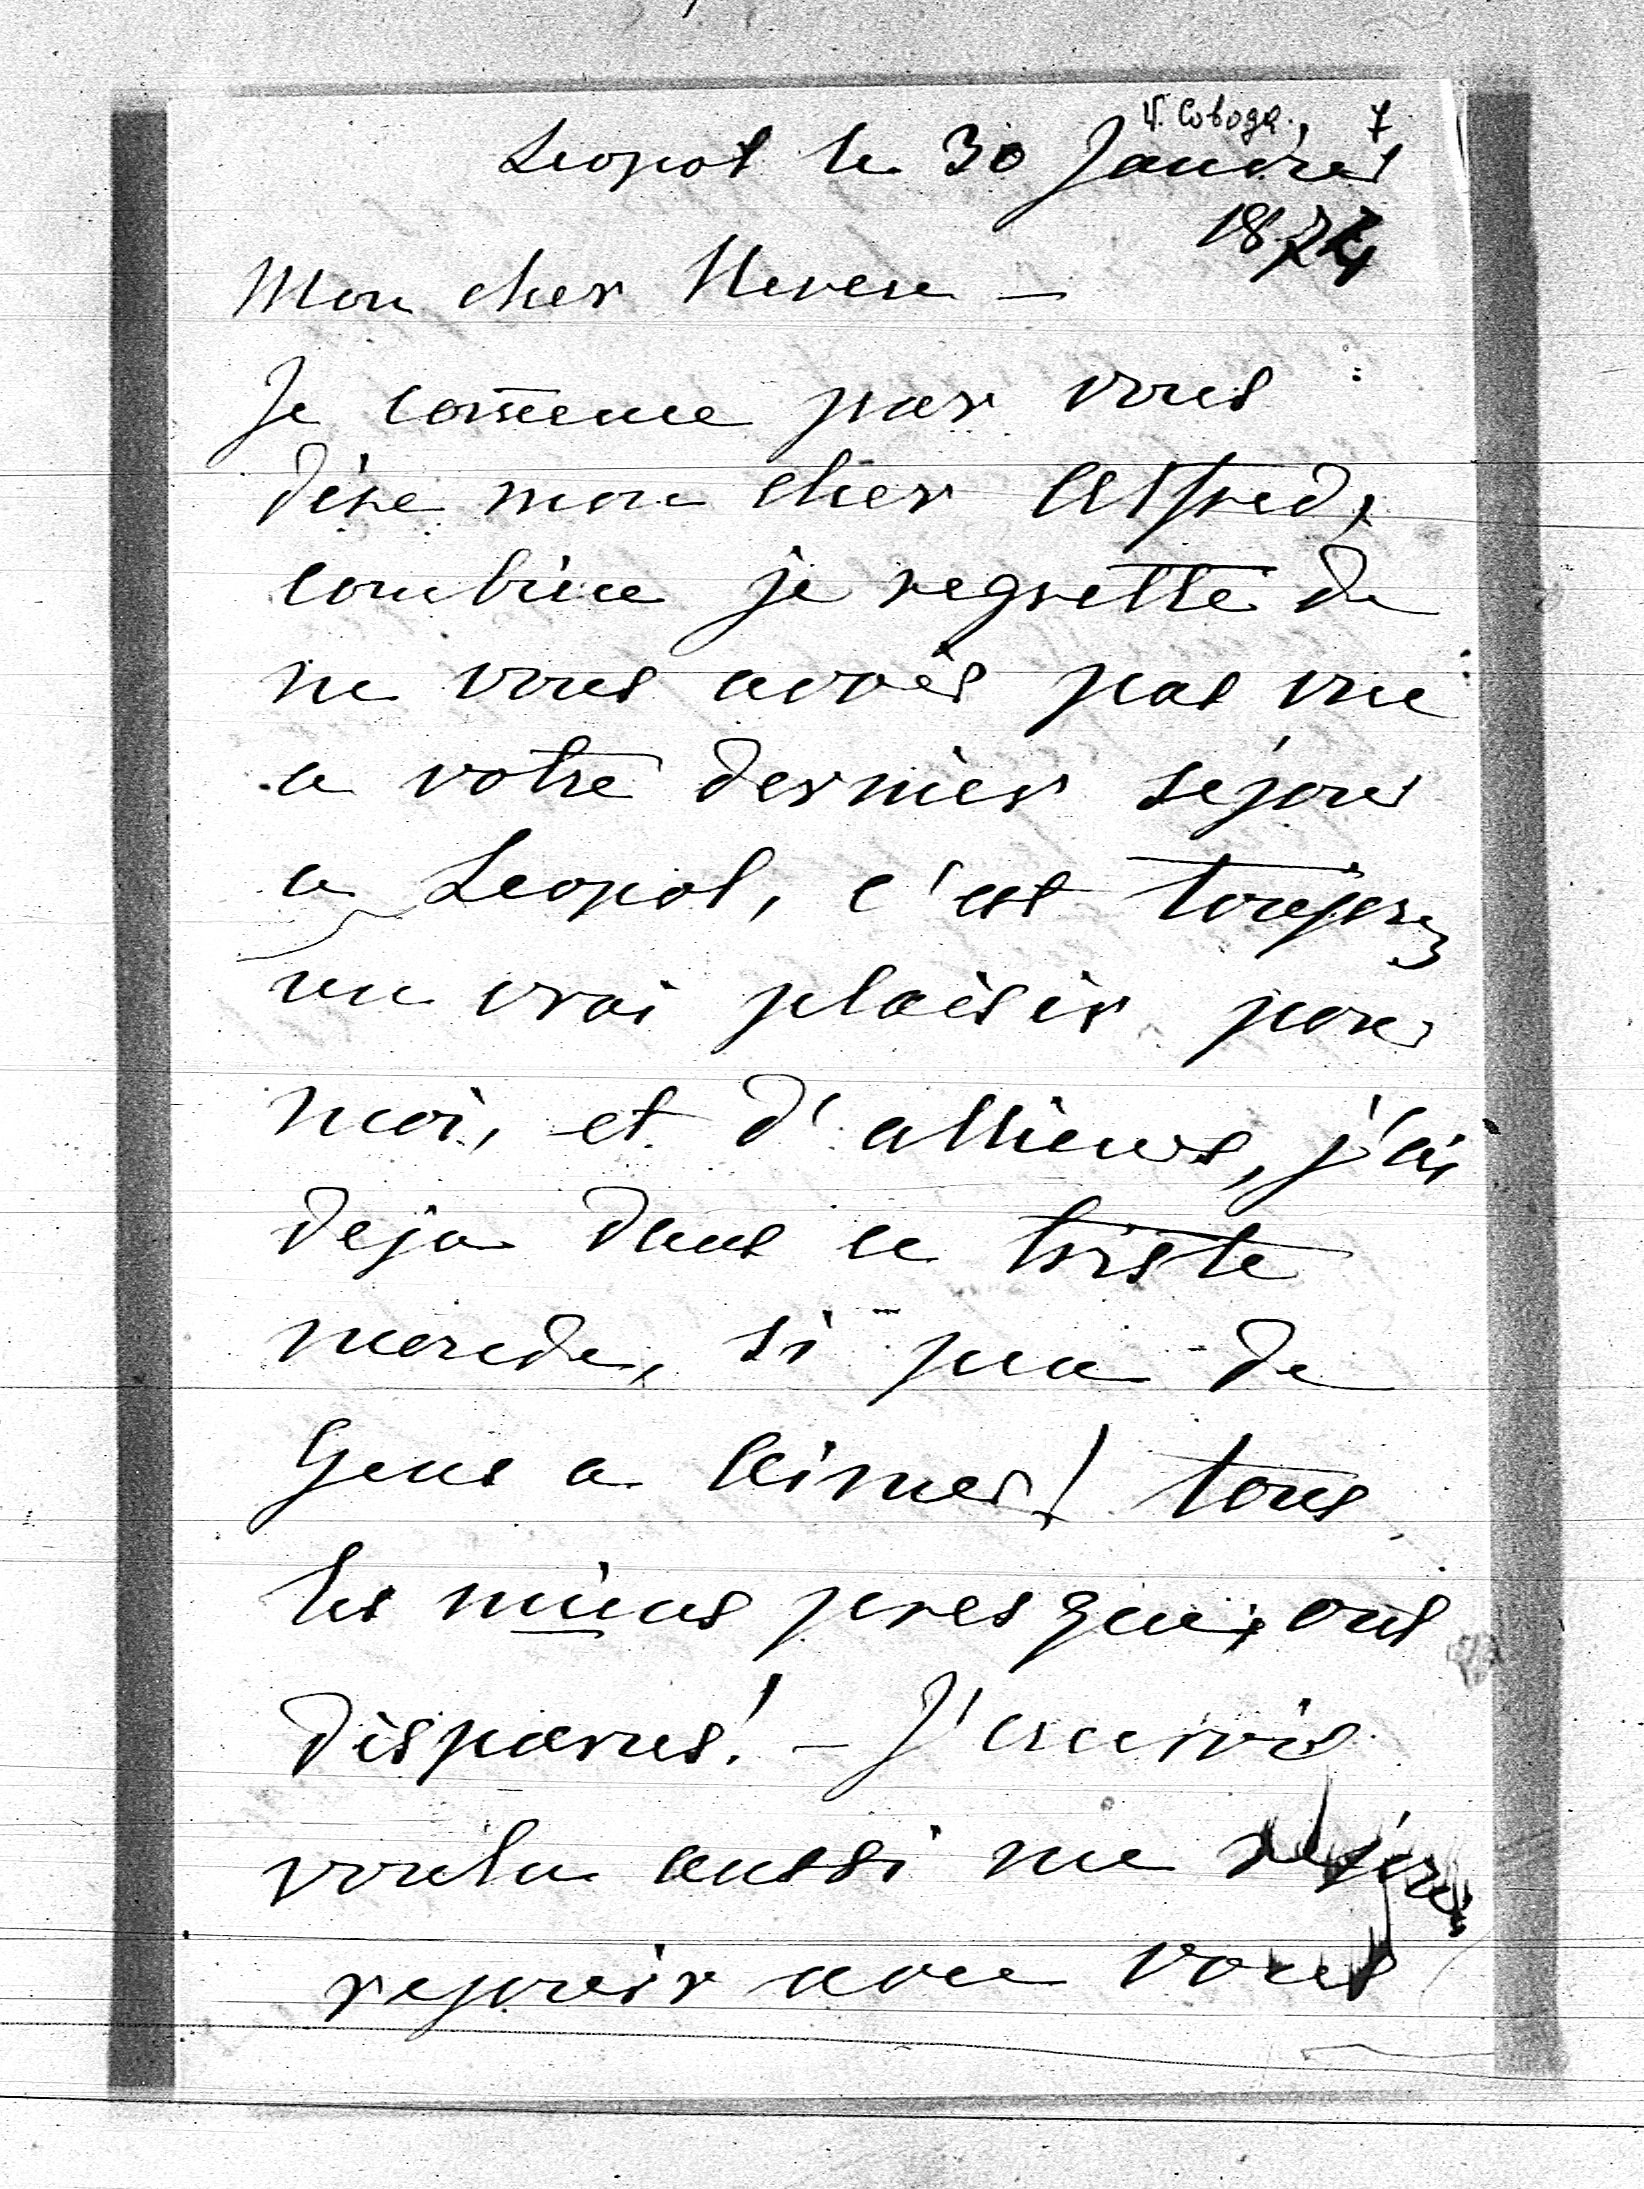 И. Свобода. 7
Leopol le 30 Janvier
1874
Mon cher Neveu –
Je com̅ence par vous
dire mon cher Alfred,
combien je regrette de
ne vous avoir pas vu
a votre dernier sejour
a Leopol, c'est toujours
un vrai plaisir pour
moi, et d'allieurs, j'ai
deja dans ce triste
monde, si peu de
Gens a Aimer! tous
les miens presque, ont
disparus! – J'aurois
voulu aussi me
rejouir avec vous